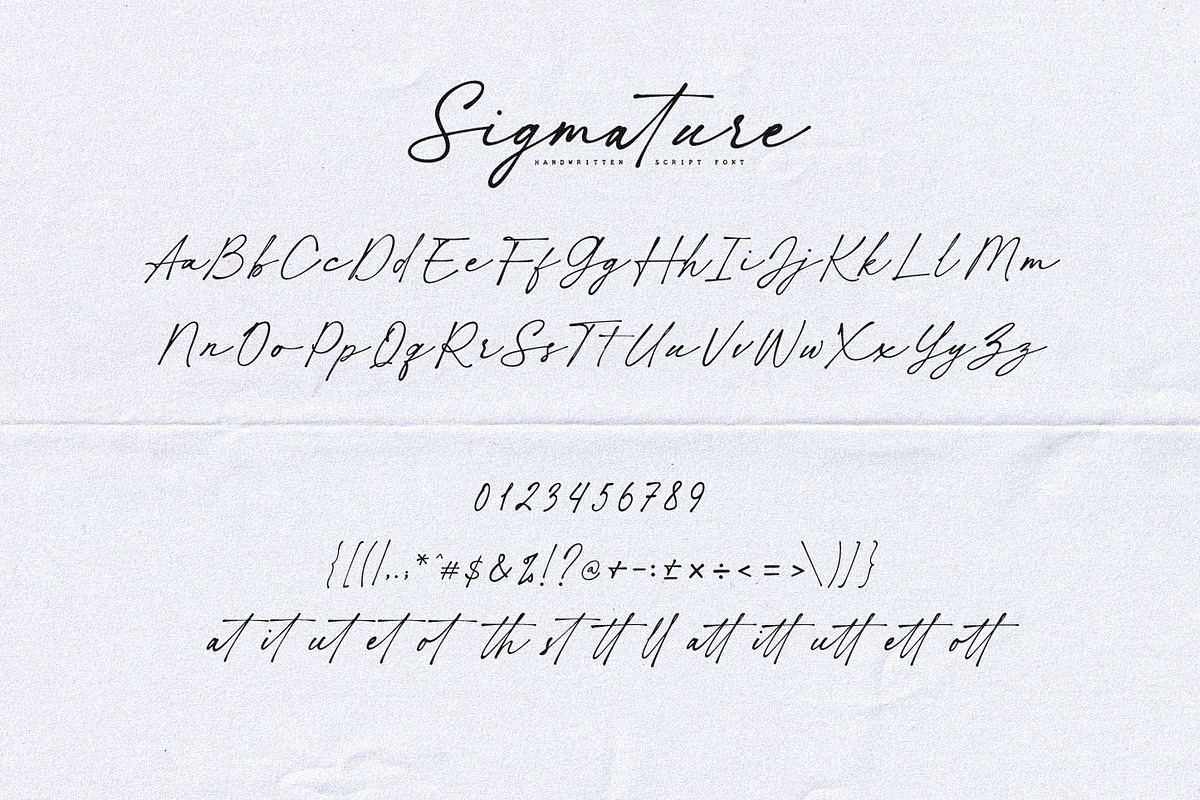 Sigmature
HANDWRITTEN SCRIPT FONT
AaBbCcDdEeFfGgHhIiJjKkLlMm
NnOoPpQqRrSsTtUuVvWwXxYyZz
0123456789
{[(|,.,;*^#$&%!?@+-:±×÷<=>\)]}
at it ut et ot th st tt ll att itt utt ett ott